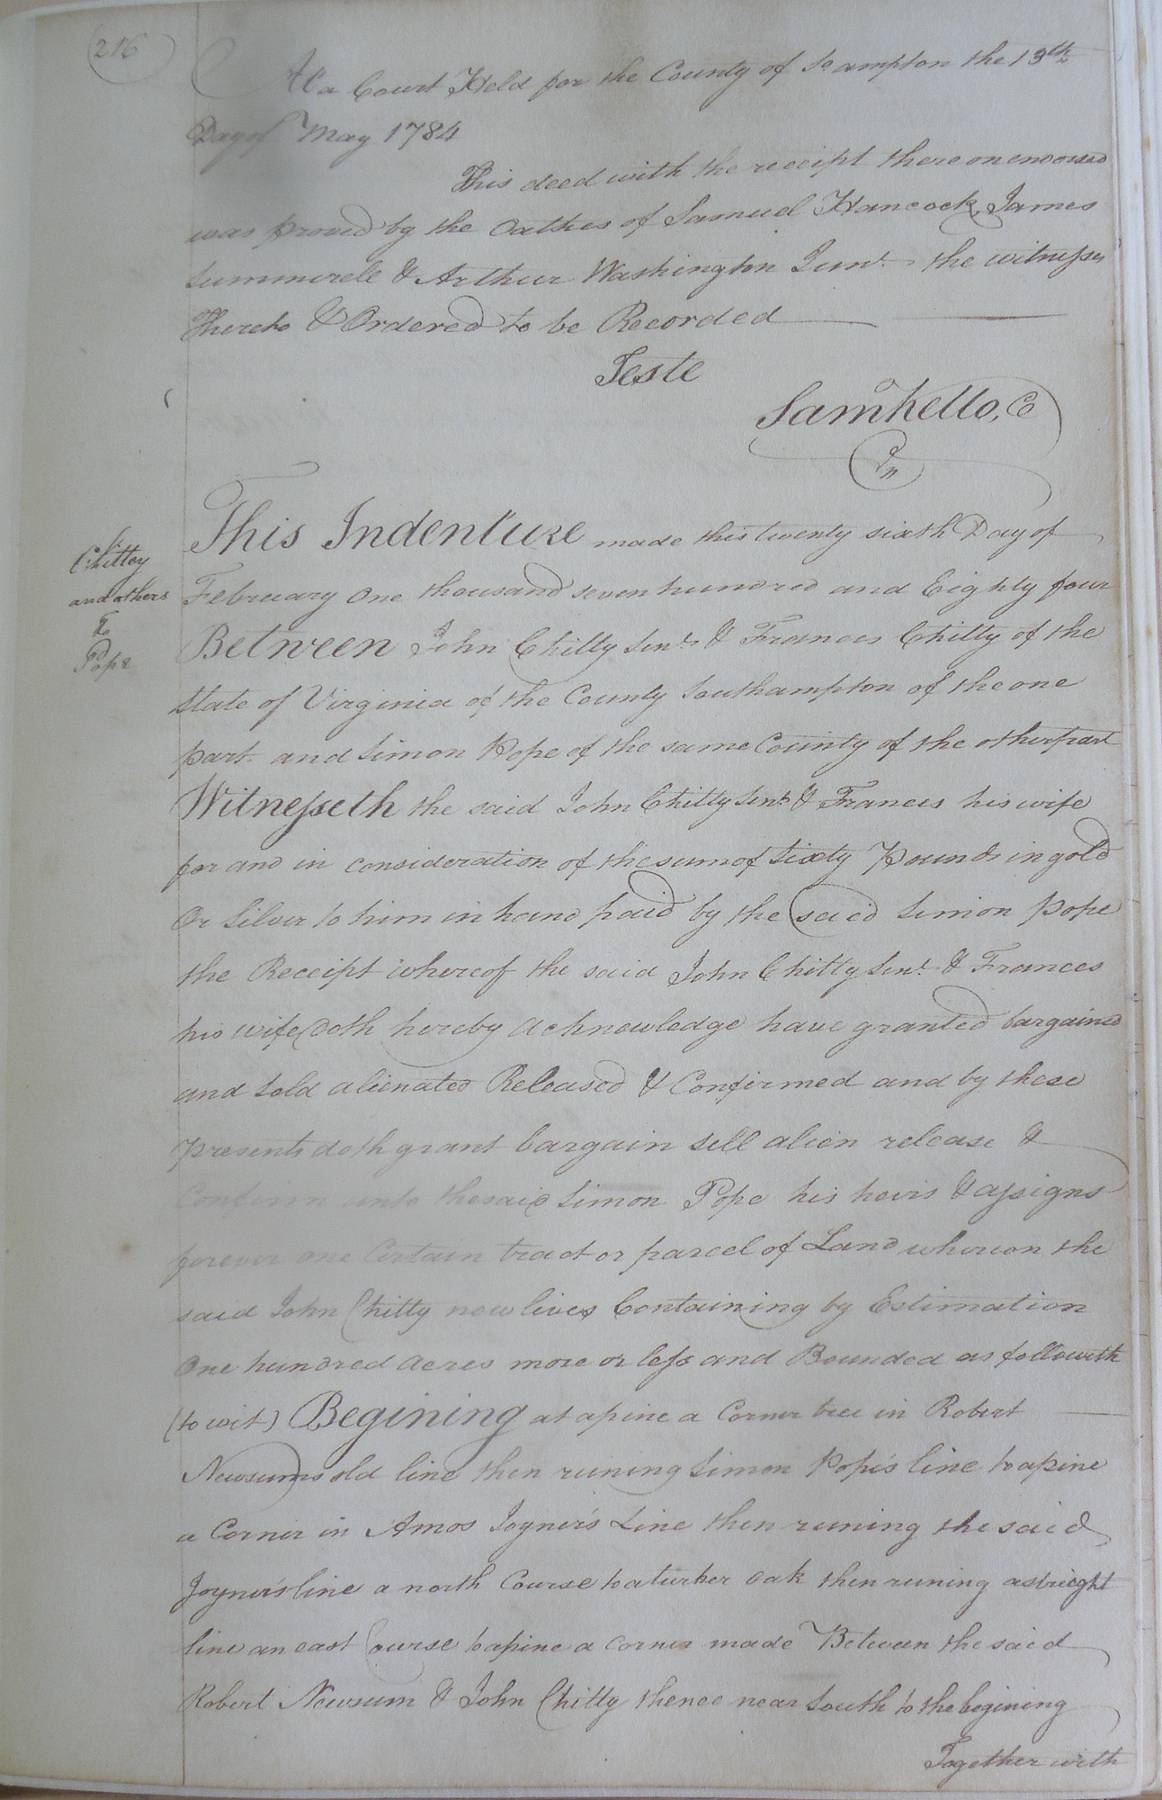 216
At a Court Held for the County of So ampton the 13th
Day of May 1784
This deed with the receipt there on endorsed
was proved by the Oathes of Samuel Hancock, James
Summerell & Arthur Washington Junr. the witnesses
Thereto & Ordered to be Recorded
Teste
Saml Kello, C
Cn
Chitty
and others
To
Pope
This Indenture made this twenty sixth Day of
February One thousand seven hundred and Eighty four
Between John Chitty Senr. & Frances Chitty of the
State of Virginia of the County Southampton of the one
part and Simon Pope of the same County of the other part
Witnesseth the said John Chitty Senr. & Frances his wife
for and in consideration of the sum of Sixty Pounds in gold
Or Silver to him in hand paid by the said Simon Pope
the Receipt whereof the said John Chitty Senr. & Frances
his wife doth hereby acknowledge have granted bargained
and sold alienated Released & Confirmed and by these
presents doth grant bargain sell alien release &
Confirm unto the said Simon Pope his heirs & assigns
forever one Certain tract or parcel of Land whereon the
said John Chitty now lives Containing by Estimation
One hundred acres more or less and Bounded as followeth
(to wit) Begining at a pine a Corner tree in Robert
Newsums old line then runing Simon Pope's line to a pine
a Corner in Amos Joyner's Line then runing the said
Joyner's line a north Course to a turker oak then runing a streight
line an east Course to a pine a corner made Between the said
Robert Newsum & John Chitty thence near South to the begining
Together with